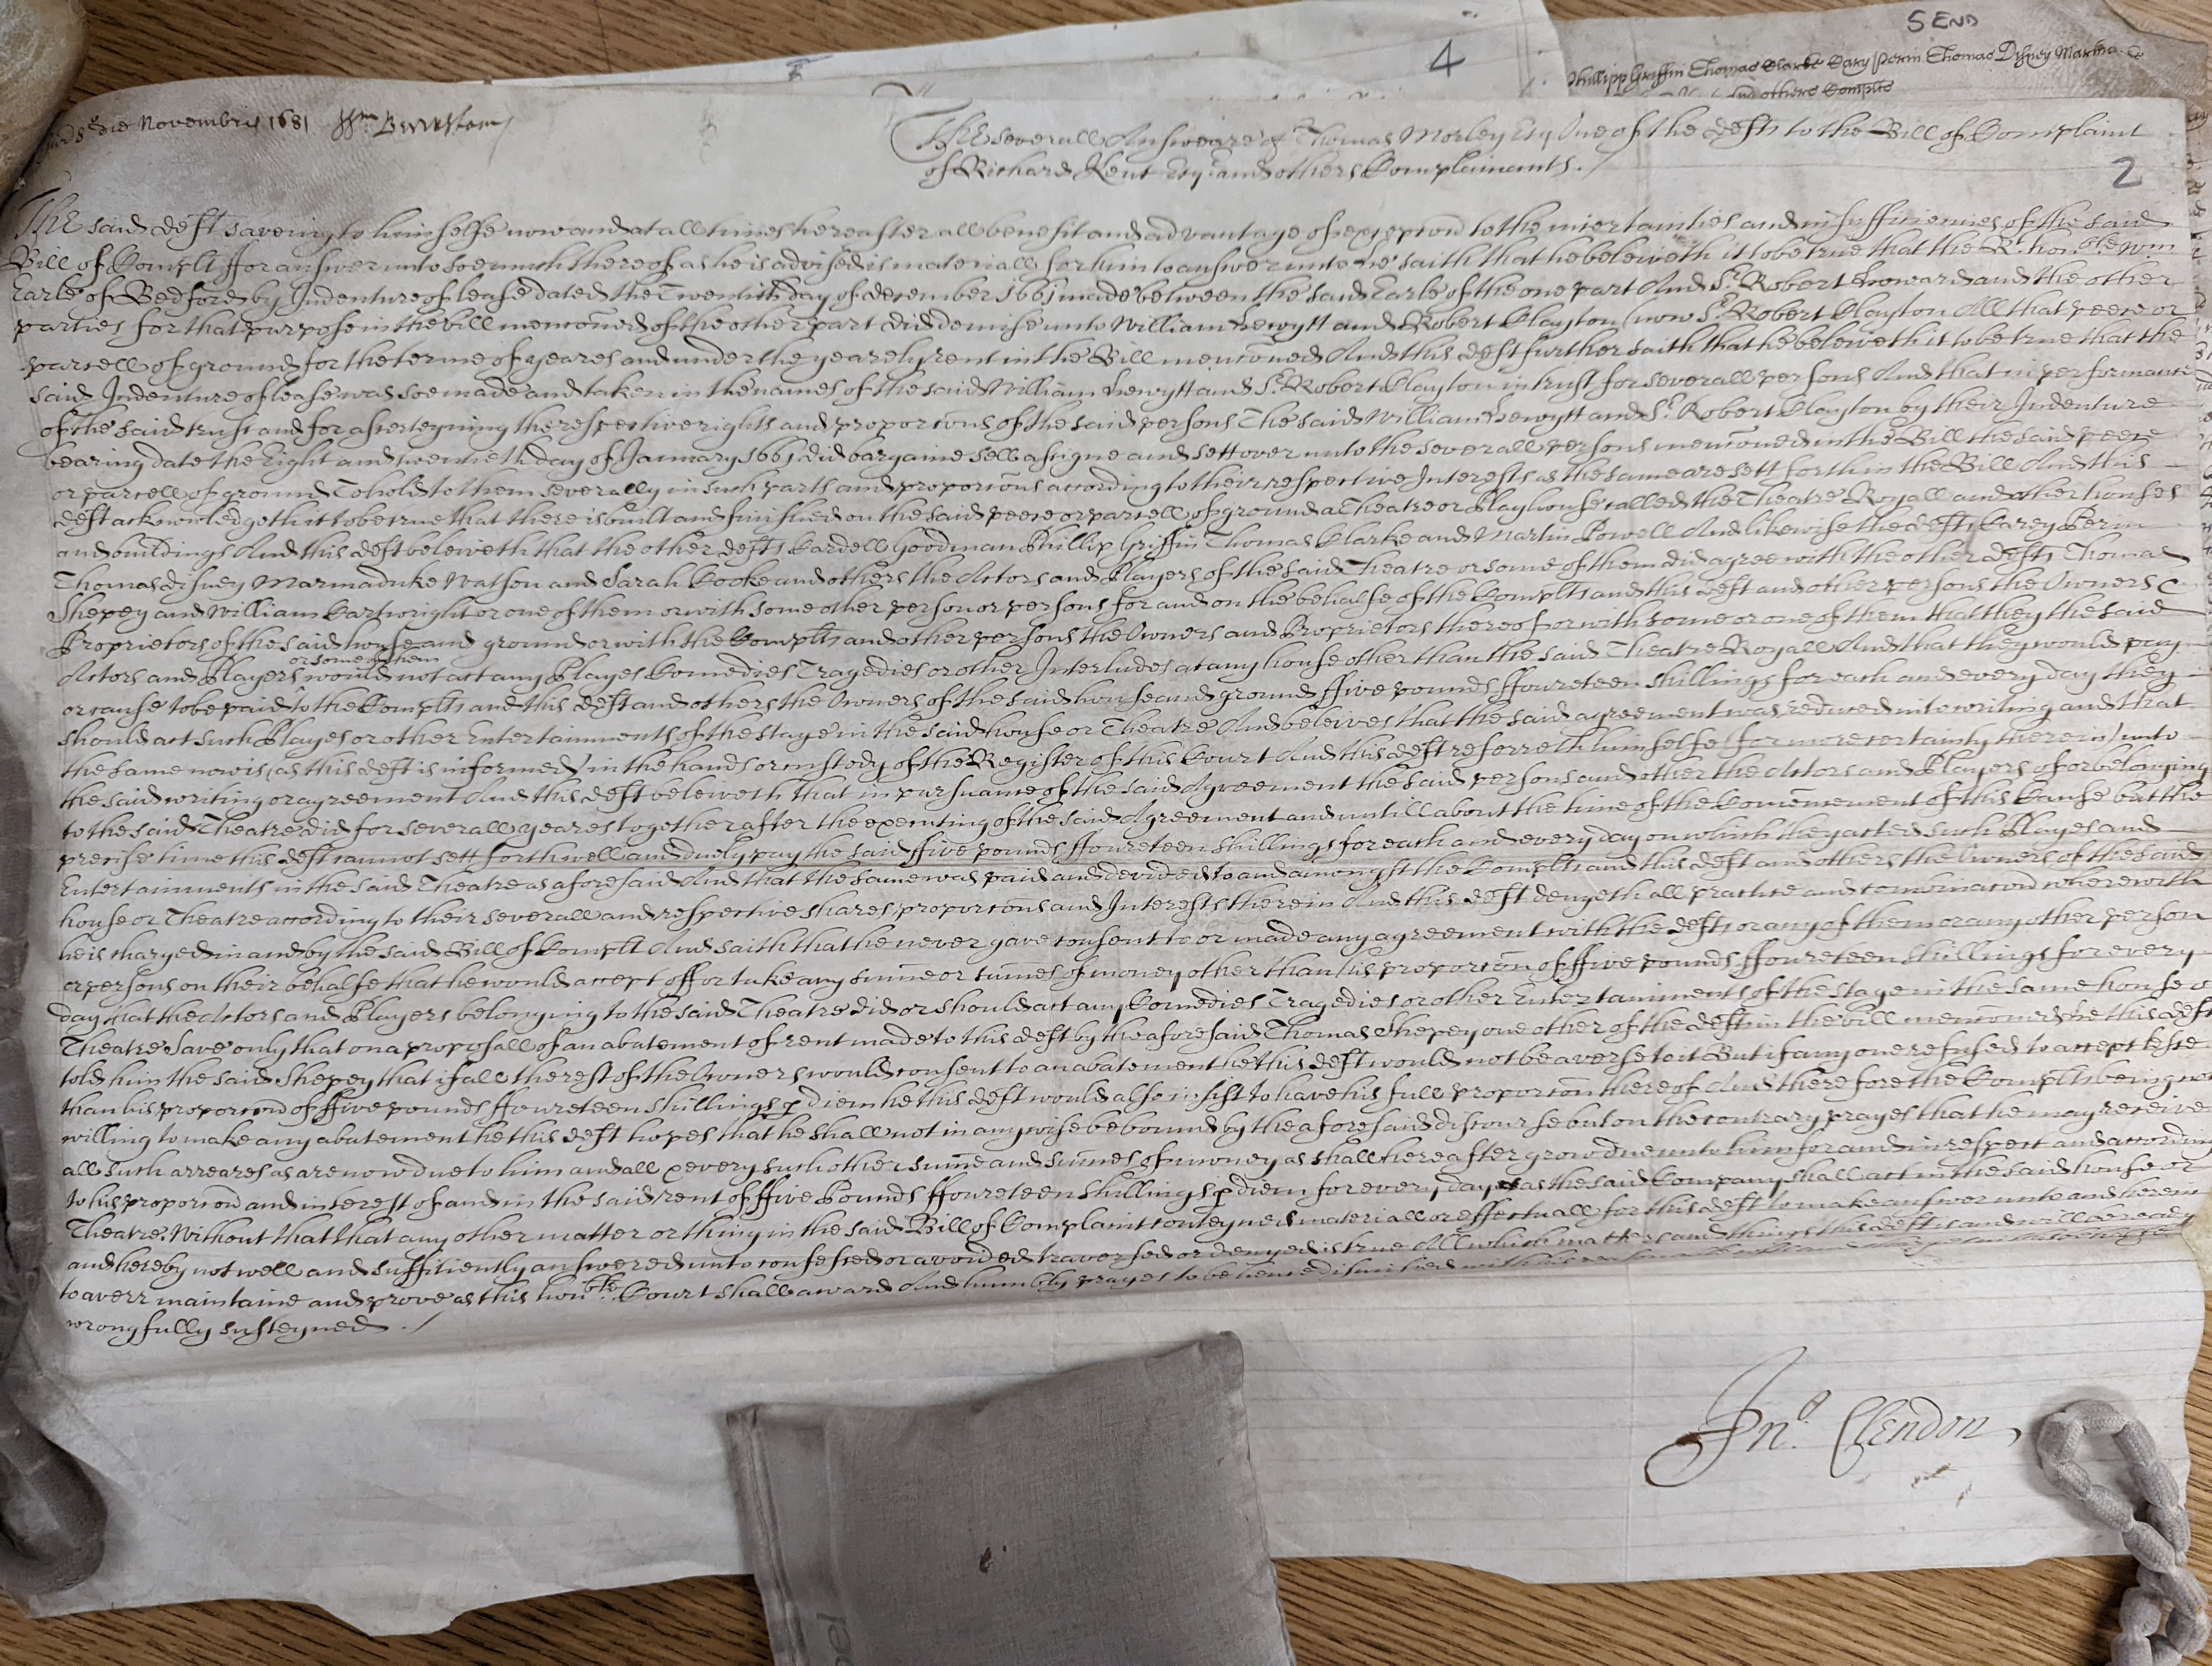 5 END
4
Phillipp Griffin Thomas Clarke Cary Perin Thomas Disney Martha
and others Complts
8o die Novembris 1681
The severall Answeare of Thomas Morley Esqr One of the Defts to the Bill of Complaint
of Richard Kent Esqr. and others Complainants.
2
The said Deft saveing to himselfe now and at all times hereafter all benefit and advantage of excepcon to the incertainties and insufficiencies of the said
Bill of Complt ffor answer unto soe much thereof as he is advised is materiall for him to answer unto he saith that he beleiveth it to be true that the Rt. honoble Wm
Earle of Bedford by Indenture of lease dated the Twentith day of December 1661 made between the said Earle of the one part And Sr. Robert Howard and the other
parties for that purpose in the bill menconed of the other part did demise unto William Hewytt and Robert Clayton (now Sr. Robert Clayton All that peece or
parcell of ground for the terme of yeares and under the yearely rent in the Bill menconed And this Deft further saith that he beleiveth it to be true that the
said Indenture of lease was soe made and taken in the names of the said William Hewytt and Sr. Robert Clayton in trust for severall persons And that in performance
of the said trust and for asserteyning the respective rights and proporcons of the said persons The said William Hewytt and Sr. Robert Clayton by their Indenture
bearing date the Eight and twentieth day of January 1661 did bargaine sell assigne and sett over unto the severall persons menconed in the Bill the said peece
or parcell of ground To hold to them severally in such parts and proporcons according to their respective Interests as the same are sett forth in the Bill And this
deft acknowledgeth it to be true that there is built and finished on the said peece or parcell of ground a Theatre or Playhouse called the Theatre Royall and other houses
and buildings And this deft beleiveth that the other defts Cardell Goodman Phillip Griffin Thomas Clarke and Martin Powell And likewise the defts Carey Perin
Thomas Disney Marmaduke Watson and Sarah Cooke and others the Actors and Players of the said Theatre or some of them did agree with the other defts Thomas
Shepey and William Cartwright or one of them or with some other person or persons for and on the behalfe of the Complts and this deft and other persons the Owners &
Proprietors of the said house and ground or with the Complts and other persons the Owners and Proprietors thereof or with some or one of them that they the said
or some of them
Actors and Players would not act any Playes Comedies Tragedies or other Interludes at any house other than the said Theatre Royall And that they would pay
or cause to be paid to the Complts and this deft and others the Owners of the said house and ground ffive pounds ffoureteen shillings for each and every day they
should act such Playes or other Entertainments of the stage in the said house or Theatre And beleives that the said agreement was reduced into writing and that
the same now is (as this deft is informed) in the hands or custody of the Register of this Court And this deft referreth himselfe (for more certainty therein) unto
the said writing or agreement And this deft beleiveth that in pursuance of the said Agreement the said persons and other the Actors and Players of or belonging
to the said Theatre did for severall yeares together after the executing of the said Agreement and untill about the time of the Comencement of this Cause but the
precise time this deft cannot sett forth well and duely pay the said ffive pounds ffoureteen shillings for each and every day on which they acted such Playes and
Entertainments in the said Theatre as aforesaid And that the same was paid and devided to and amongst the Complts and this deft and others the Owners of the said
house or Theatre according to their severall and respective shares proporcons and Interests therein And this deft denyeth all practice and combinacon wherewith
he is charged in and by the said Bill of Complt And saith that he never gave consent to or made any agreement with the defts or any of them or any other person
or persons on their behalfe that he would accept off or take any sume or sumes of money other than his proporcon of ffive pounds ffoureteen shillings for every
day that the Actors and Players belonging to the said Theatre did or should act any Comedies Tragedies or other Entertainments of the stage in the same house or
Theatre Save only that on a proposall of an abatement of rent made to this deft by the aforesaid Thomas Shepey one other of the defts in the bill menconed he this deft
told him the said Shepey that if all the rest of the Owners would consent to an abatement he this deft would not be averse to it But if any one refused to accept lesse
than his proporcon of ffive pounds ffoureteen shillings p diem he this deft would also insist to have his full proporcon thereof And therefore the Complts being not
willing to make any abatement he this deft hopes that he shall not in any wise be bound by the aforesaid discourse but on the contrary prayes that he may receive
all such arreares as are now due to him and all & every such other sume and sumes of money as shall hereafter grow due unto him for and in respect and according
to his proporcon and interest of and in the said rent of ffive Pounds ffoureteen shillings p diem for every day as the said Company shall act in the said house or
Theatre. Without that that any other matter or thing in the said Bill of Complaint conteyned materiall or effectuall for this deft to make answer unto and herein
and hereby not well and sufficiently answered unto confessed or avoided traversed or denyed is true All which matters and things this deft is and will be ready
to averr maintaine and prove as this honoble Court shall award And humbly prayes to be hence dismissed with his
wrongfully susteyned.
Jno. Clendon